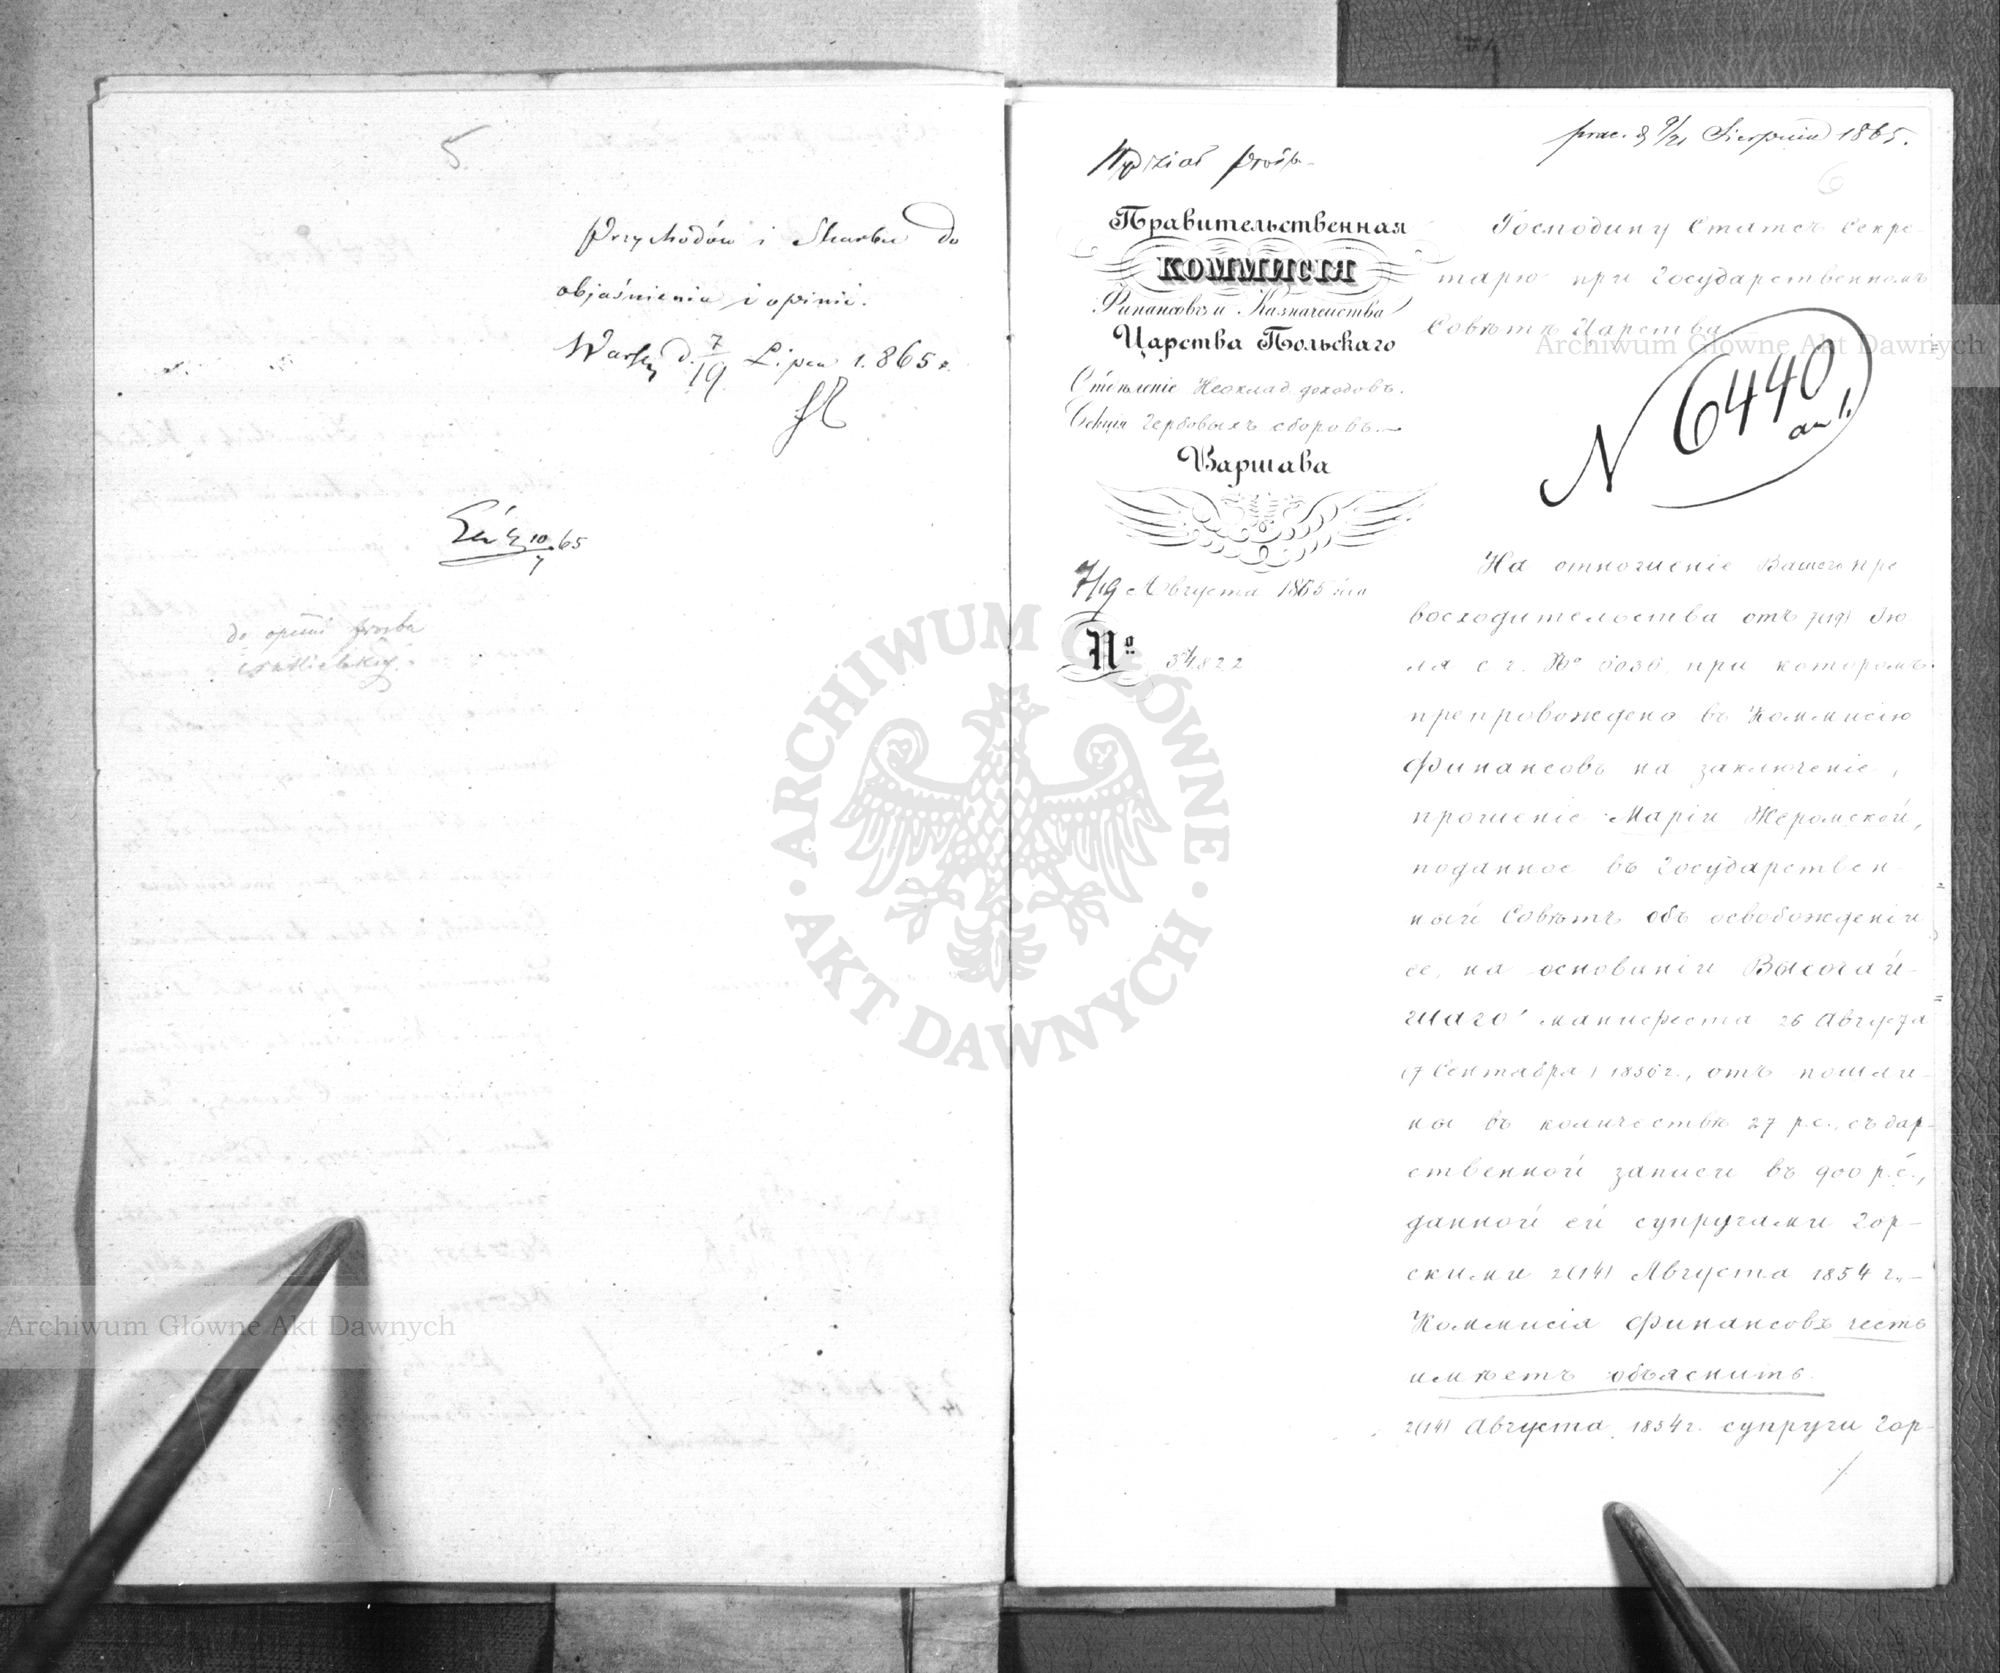 5
Przychodów i Skarbu do
objaśnienia i opinii.
Warsz. d. 7/19 Lipca 1.865 r.
10/7 65
do opinii prośba
prac. d 9/21 Sierpnia 1865.
Wydział Próśb
6
Правительственная
КОММИСІЯ
Финансовъ и Казначейства
Царства Польскаго
Отдѣленіе Неоклад. доходовъ.
Секція Гербовыхъ сборовъ.
Варшава
7/19 Августа 1865 года
№ 34822
Господину Статсъ Секре-
тарю при Государственномъ
Совѣтѣ Царства
N 6440
На отношеніе Вашего пре
восходительства отъ 7(19) Ію
ля с. г. № 6036, при которомъ
препровождено въ Коммисію
Финансовъ на заключеніе,
прошеніе Маріи Жеромской,
поданное въ Государствен-
ный Совѣтъ объ освобожденіи
ее, на основаніи Высочай-
шаго манифеста 26 Августа
(7 Сентября) 1856 г., отъ пошли-
ны въ количествѣ 27 р.с., съ дар-
ственной записи въ 900 р.с.,
данной ей супругами Гор-
скими 2(14) Августа 1854 г.,-
Коммисія Финансовъ честь
имѣетъ объяснить:
2(14) Августа 1854 г. супруги Гор-
ARCHIWUM GŁÓWNE AKT DAWNYCH
Archiwum Główne Akt Dawnych
Archiwum Główne Akt Dawnych